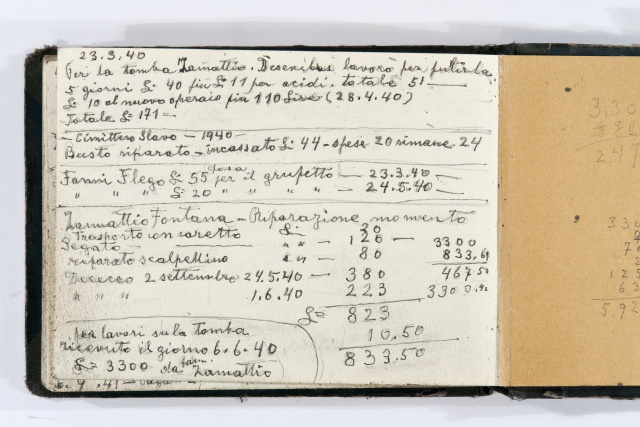 23.3.40
Per la tomba Zamattio. lavoro per pulirla
5 giorni £ 40 più £ 11 per acidi. totale 51
£ 10 al nuovo operaio più 110 Lire (28.4.40)
Totale £ 171 =
- Cimittero Slavo - 1940 -
Busto riparato - incassato £ 44 - spese 20 rimane 24
Fanni Flego £ 55 posa per il grupetto - 23.3.40 -
" " " £ 20 " " " " - 24.5.40 -
Zamattio Fontana - Riparazione momento
Trasporto con caretto £ 20
Segato " " - 120 - 3300
riparato scalpellino " " - 80 833,
2 settembre 24.5.40 - 380 467 50
" " " 1.6.40 223 3300
£ = 823
10.50
833.50
per lavori sula tomba
ricevuto il giorno 6.6.40
£ = 3300 da fam. Zamattio
9.41
3.30
247
5.92